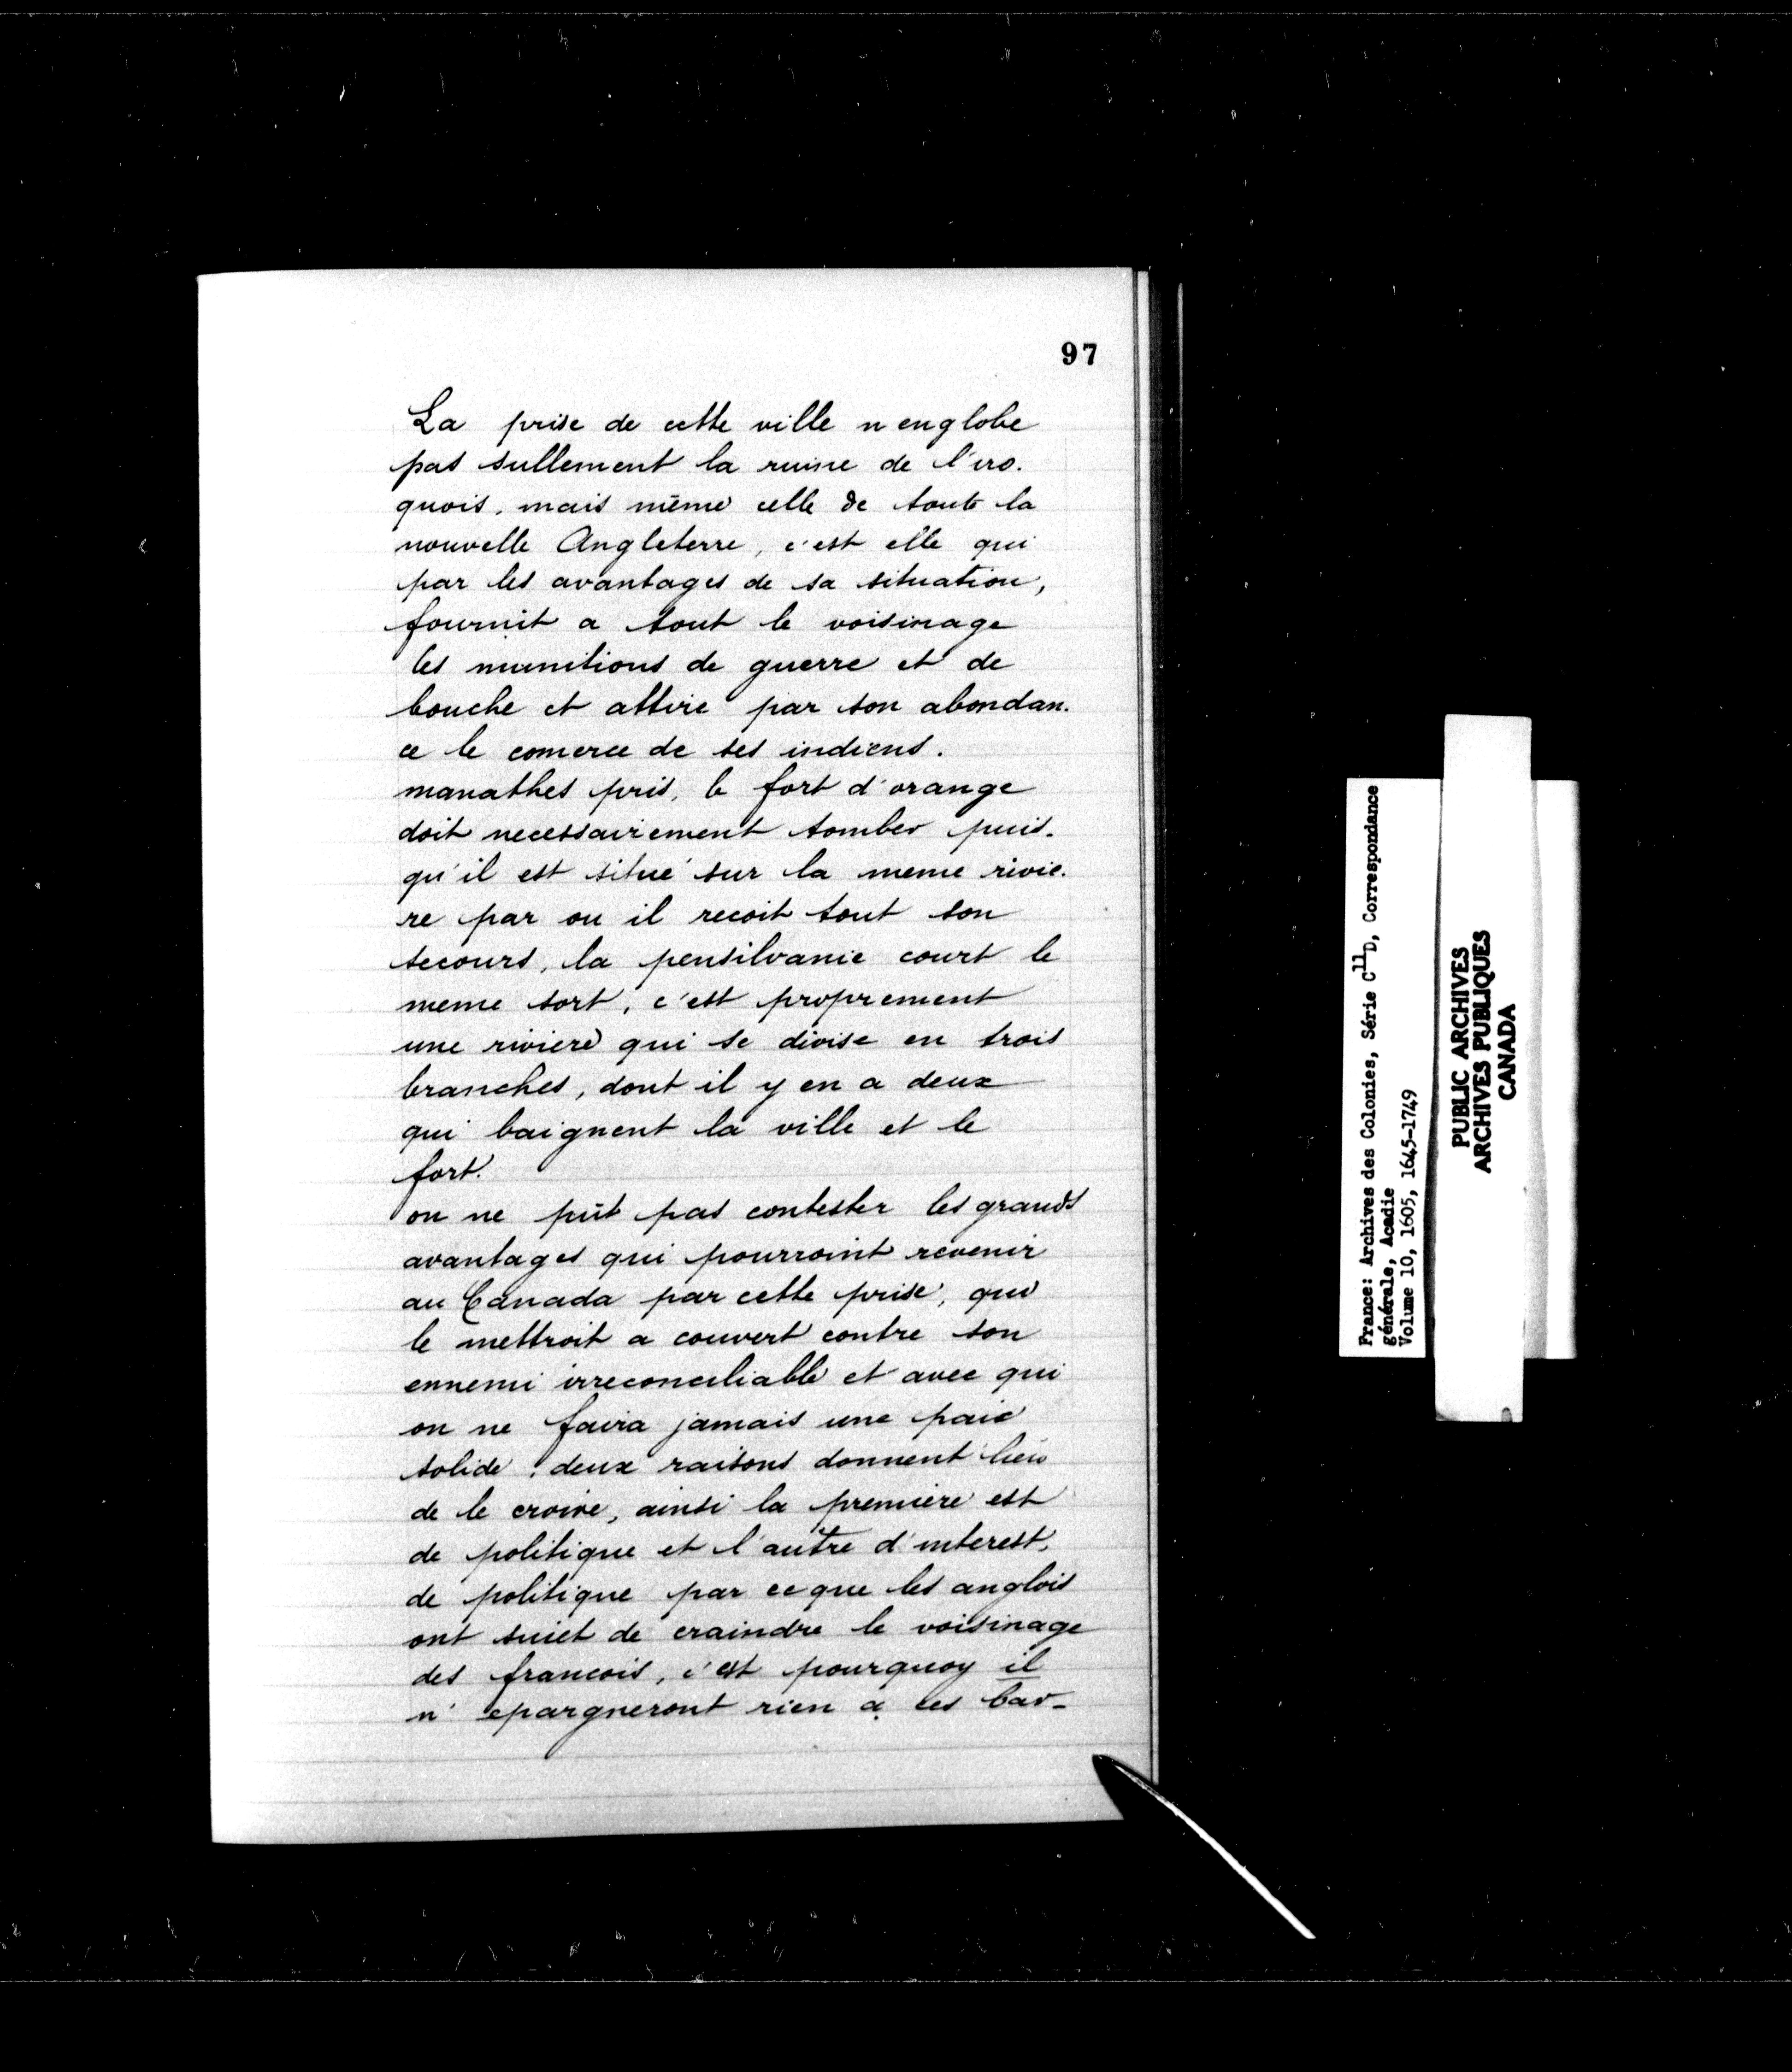 97
La prise de cette ville n englobe
pas sullement la ruine de l'iro-
quois, mais même celle de toute la
nouvelle Angleterre, c'est elle qui
par les avantages de sa situation,
fournit a tout le voisinage
les munitions de guerre et de
bouche et attire par son abondan-
ce le comerce de ses indiens.
manathes pris, le fort d'orange
doit necessairement tomber puis-
qu'il est situé sur la meme rivie-
re par ou il recoit tout son
secours, la pensilvanie court le
meme sort, c'est proprement
une riviere qui se divise en trois
branches, dont il y en a deux
qui baignent la ville et le
fort.
on ne pût pas contester les grands
avantages qui pourroint revenir
au Canada par cette prise, qui
le mettroit a couvert contre son
ennemi irreconciliable et avec qui
on ne faira jamais une paix
solide; deux raisons donnent lieu
de le croire, ainsi la premiere est
de politique et l'autre d'interest,
de politique par ce que les anglois
ont suiet de craindre le voisinage
des francois, c'est pourquoy il
n' epargneront rien a ces bar-
France: Archives des Colonies, Série C11D, Correspondance
générale, Acadie
Volume 10, 1605, 1645-1749
PUBLIC ARCHIVES
ARCHIVES PUBLIQUES
CANADA